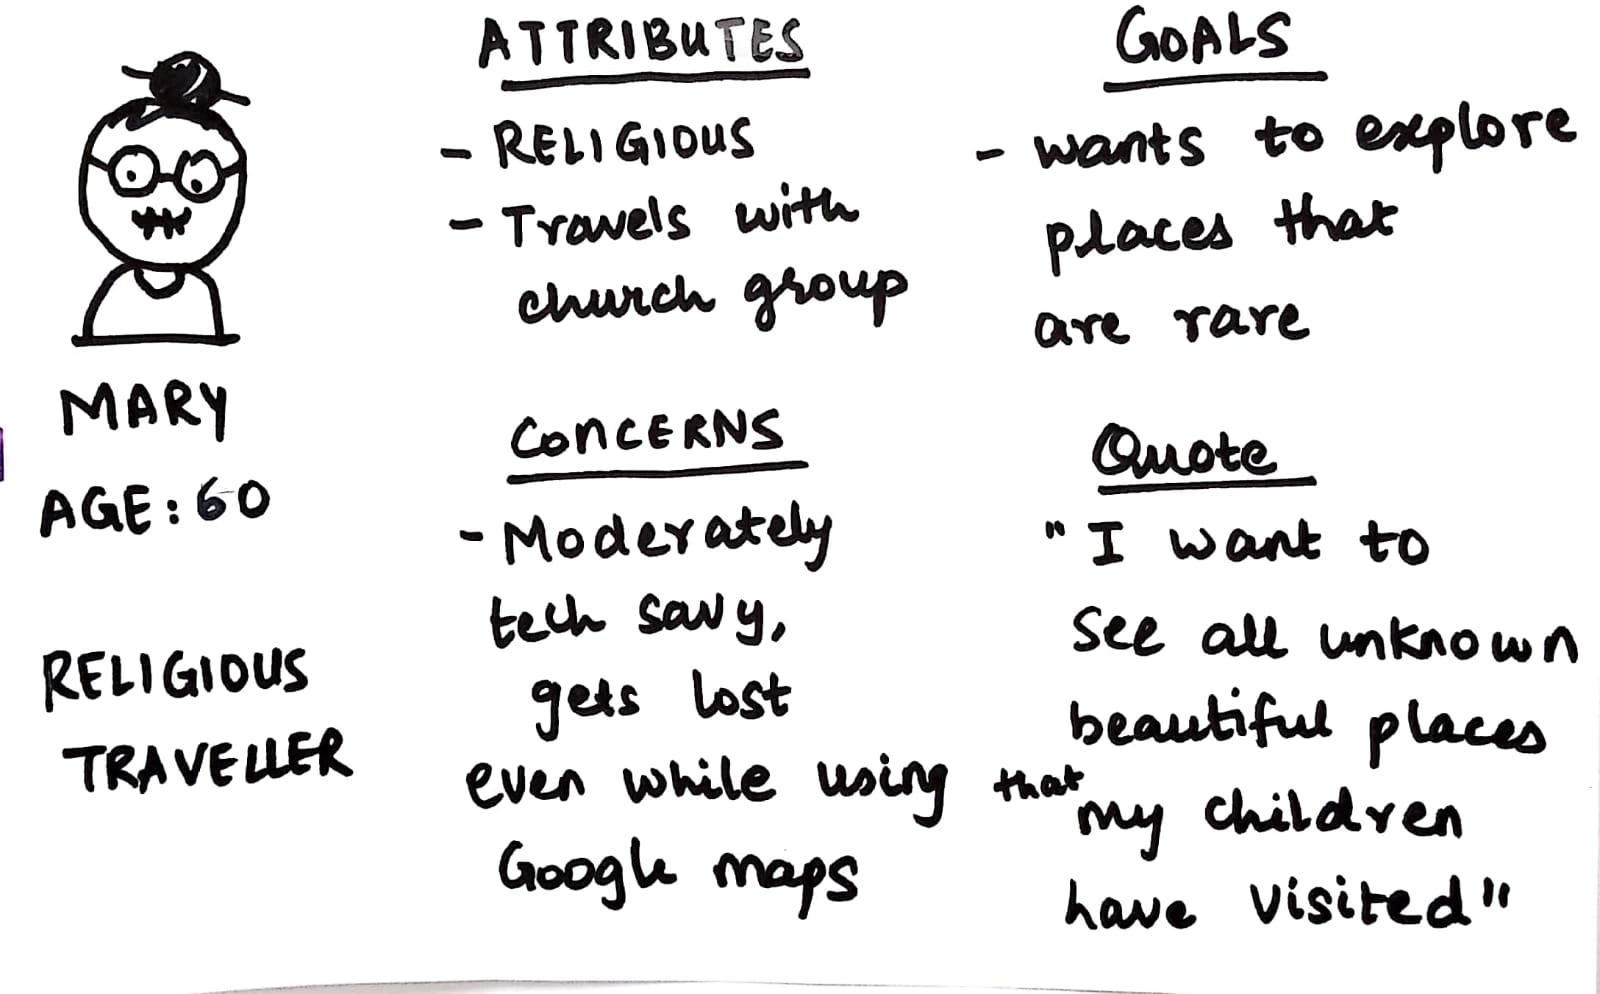 MARY
AGE: 60
RELIGIOUS
TRAVELLER
ATTRIBUTES
- RELIGIOUS
- Travels with
church group
GOALS
- wants to explore
places that
are rare
CONCERNS
- Moderately
tech savy,
gets lost
even while using
Google maps
Quote
"I want to
see all unknown
beautiful places
that my children
have visited"